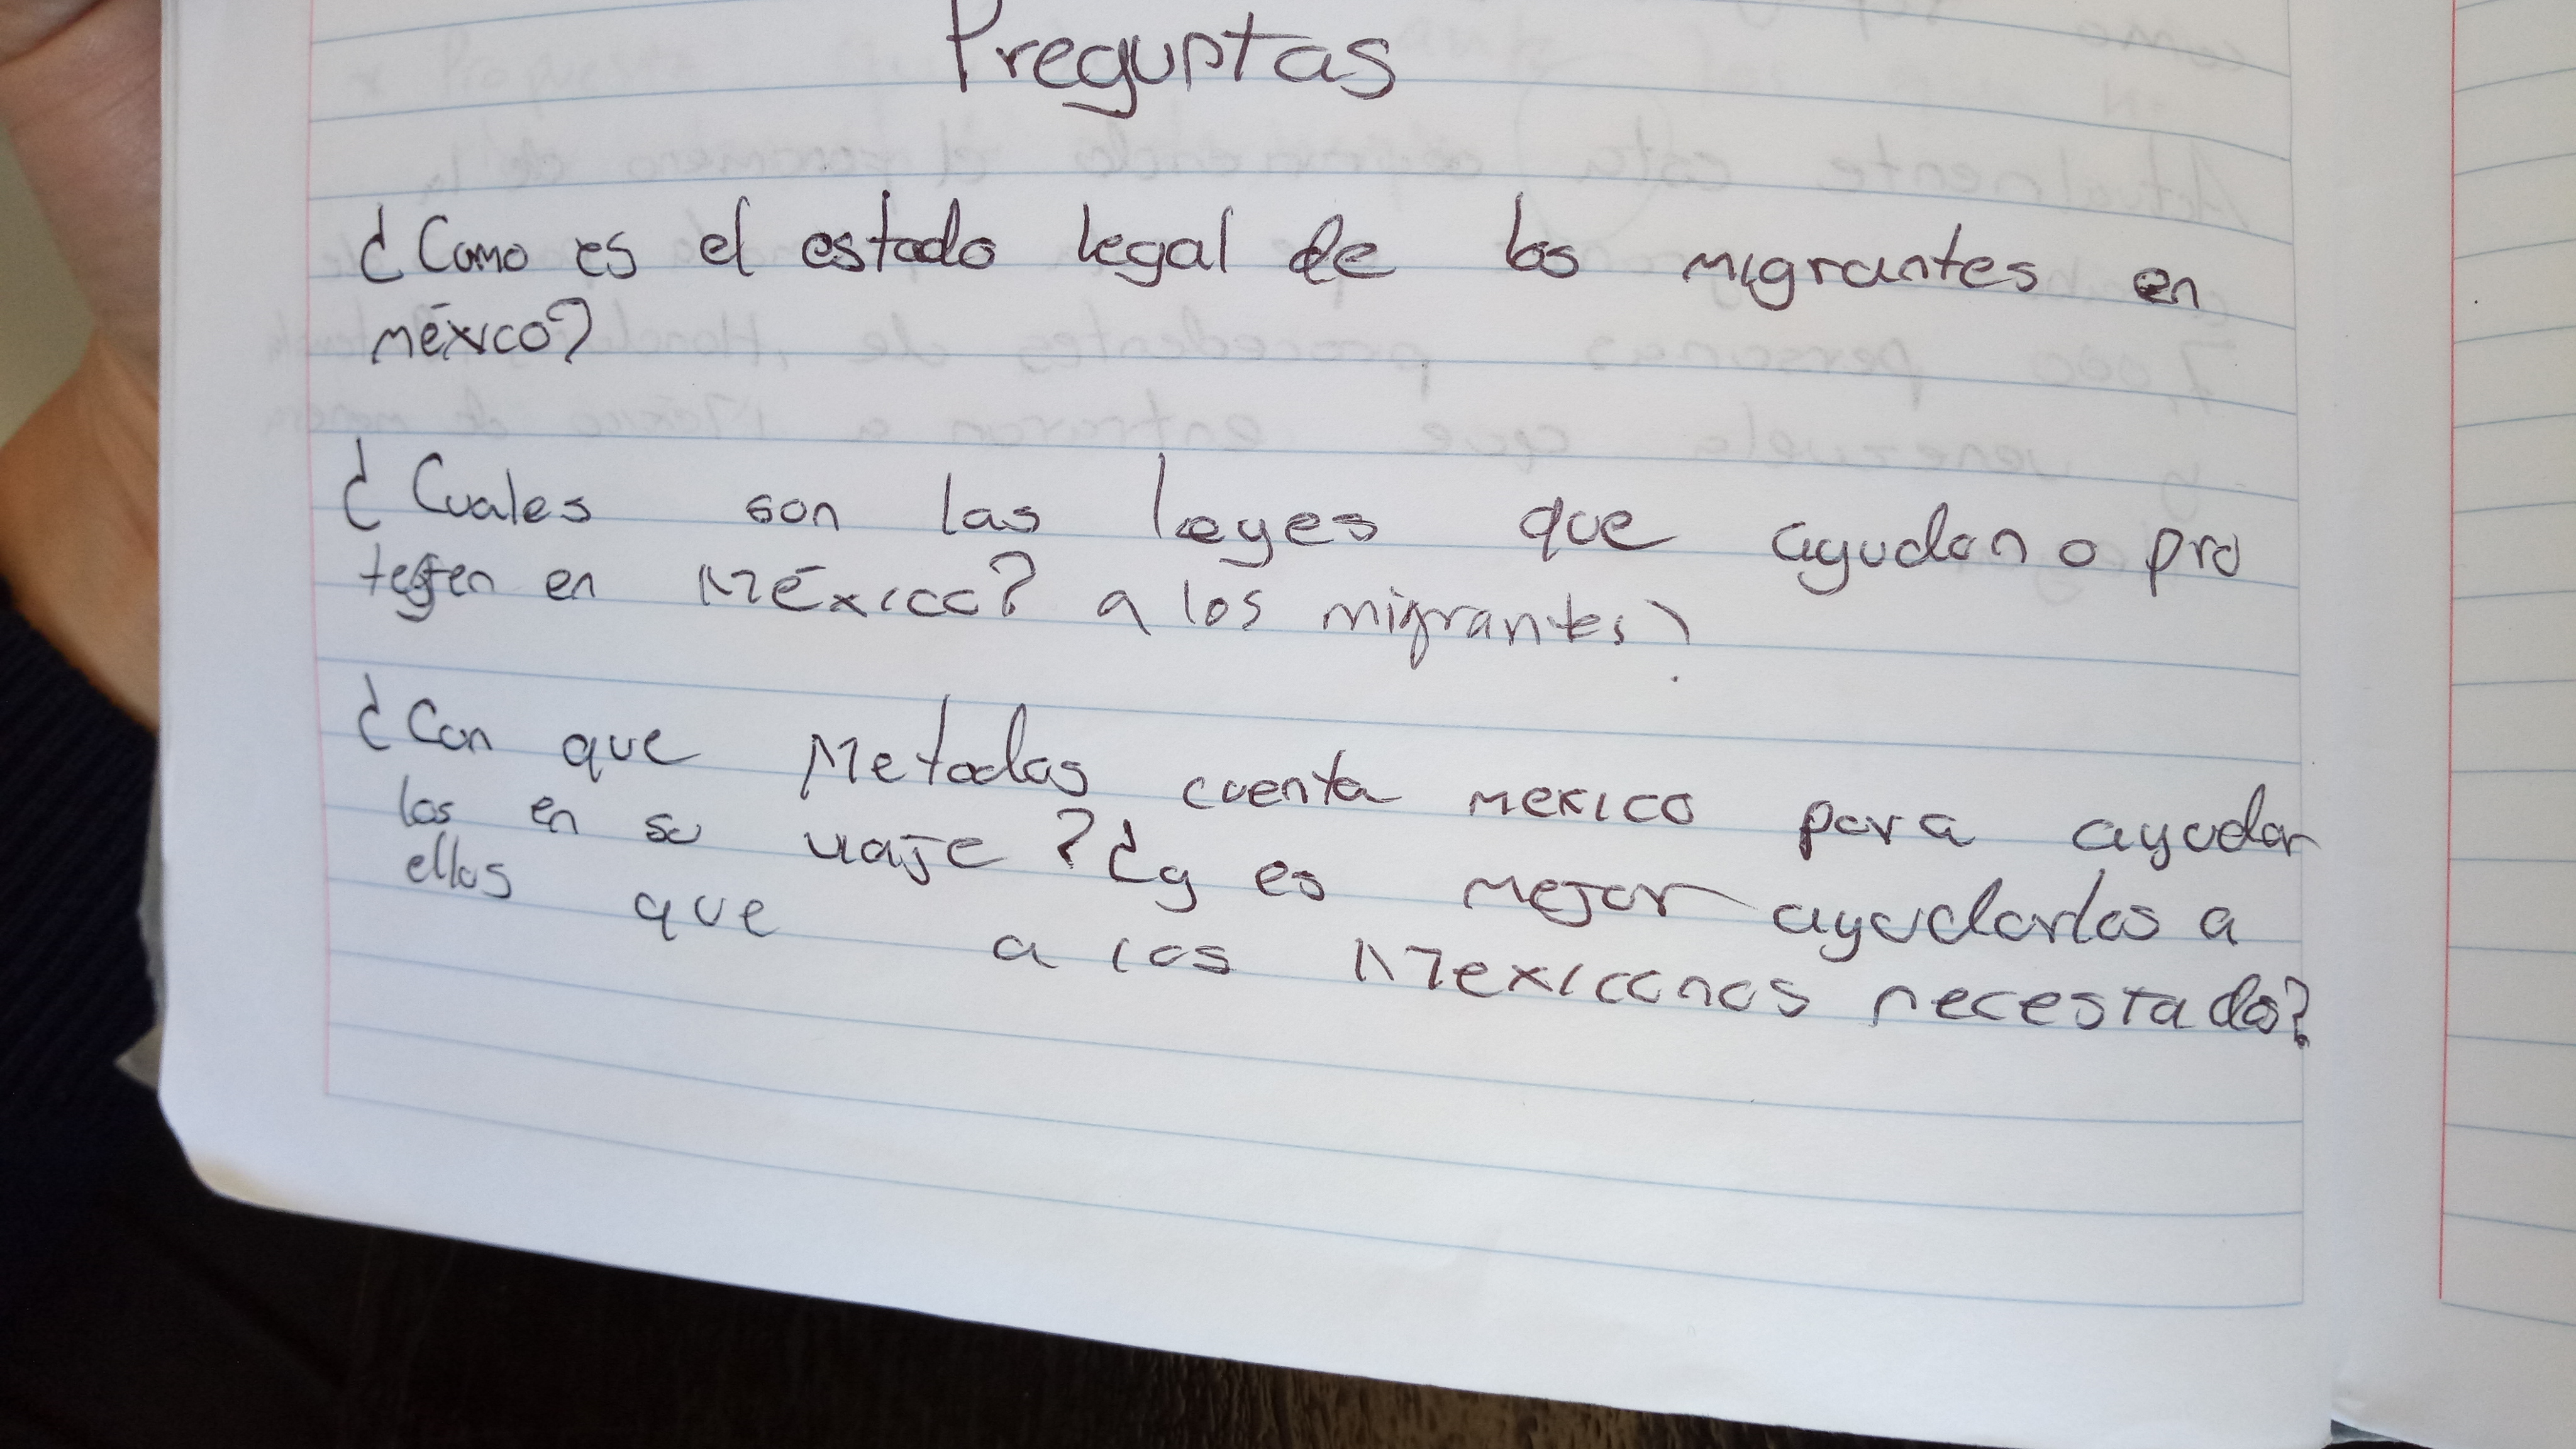 Preguntas
¿Como es el estado legal de los migrantes en
méxico?
¿Cuales son las leyes que ayudan o pro
tegen en México? a los migrantes?
¿Con que Metodos cuenta mexico para ayudar
los en su viaje? ¿y es mejor ayudarlos a
ellos que a los Mexicanos necestados?